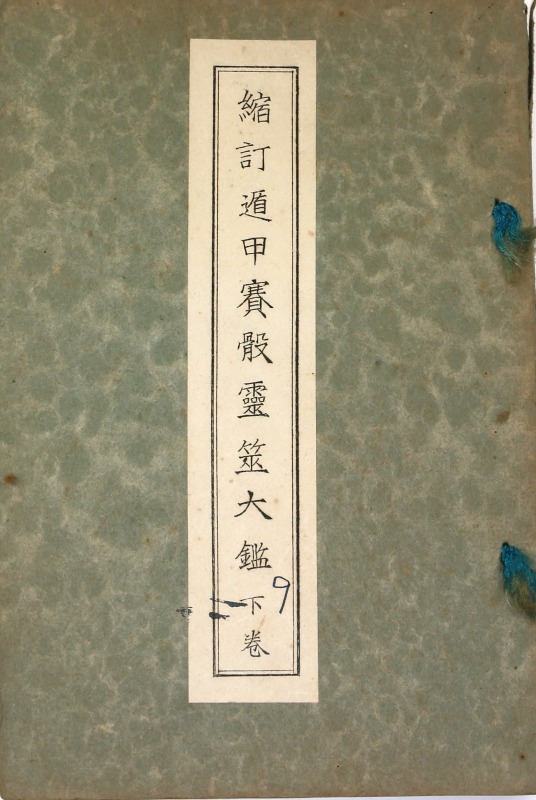 縮訂遁甲賽骰靈筮大鑑下卷
9